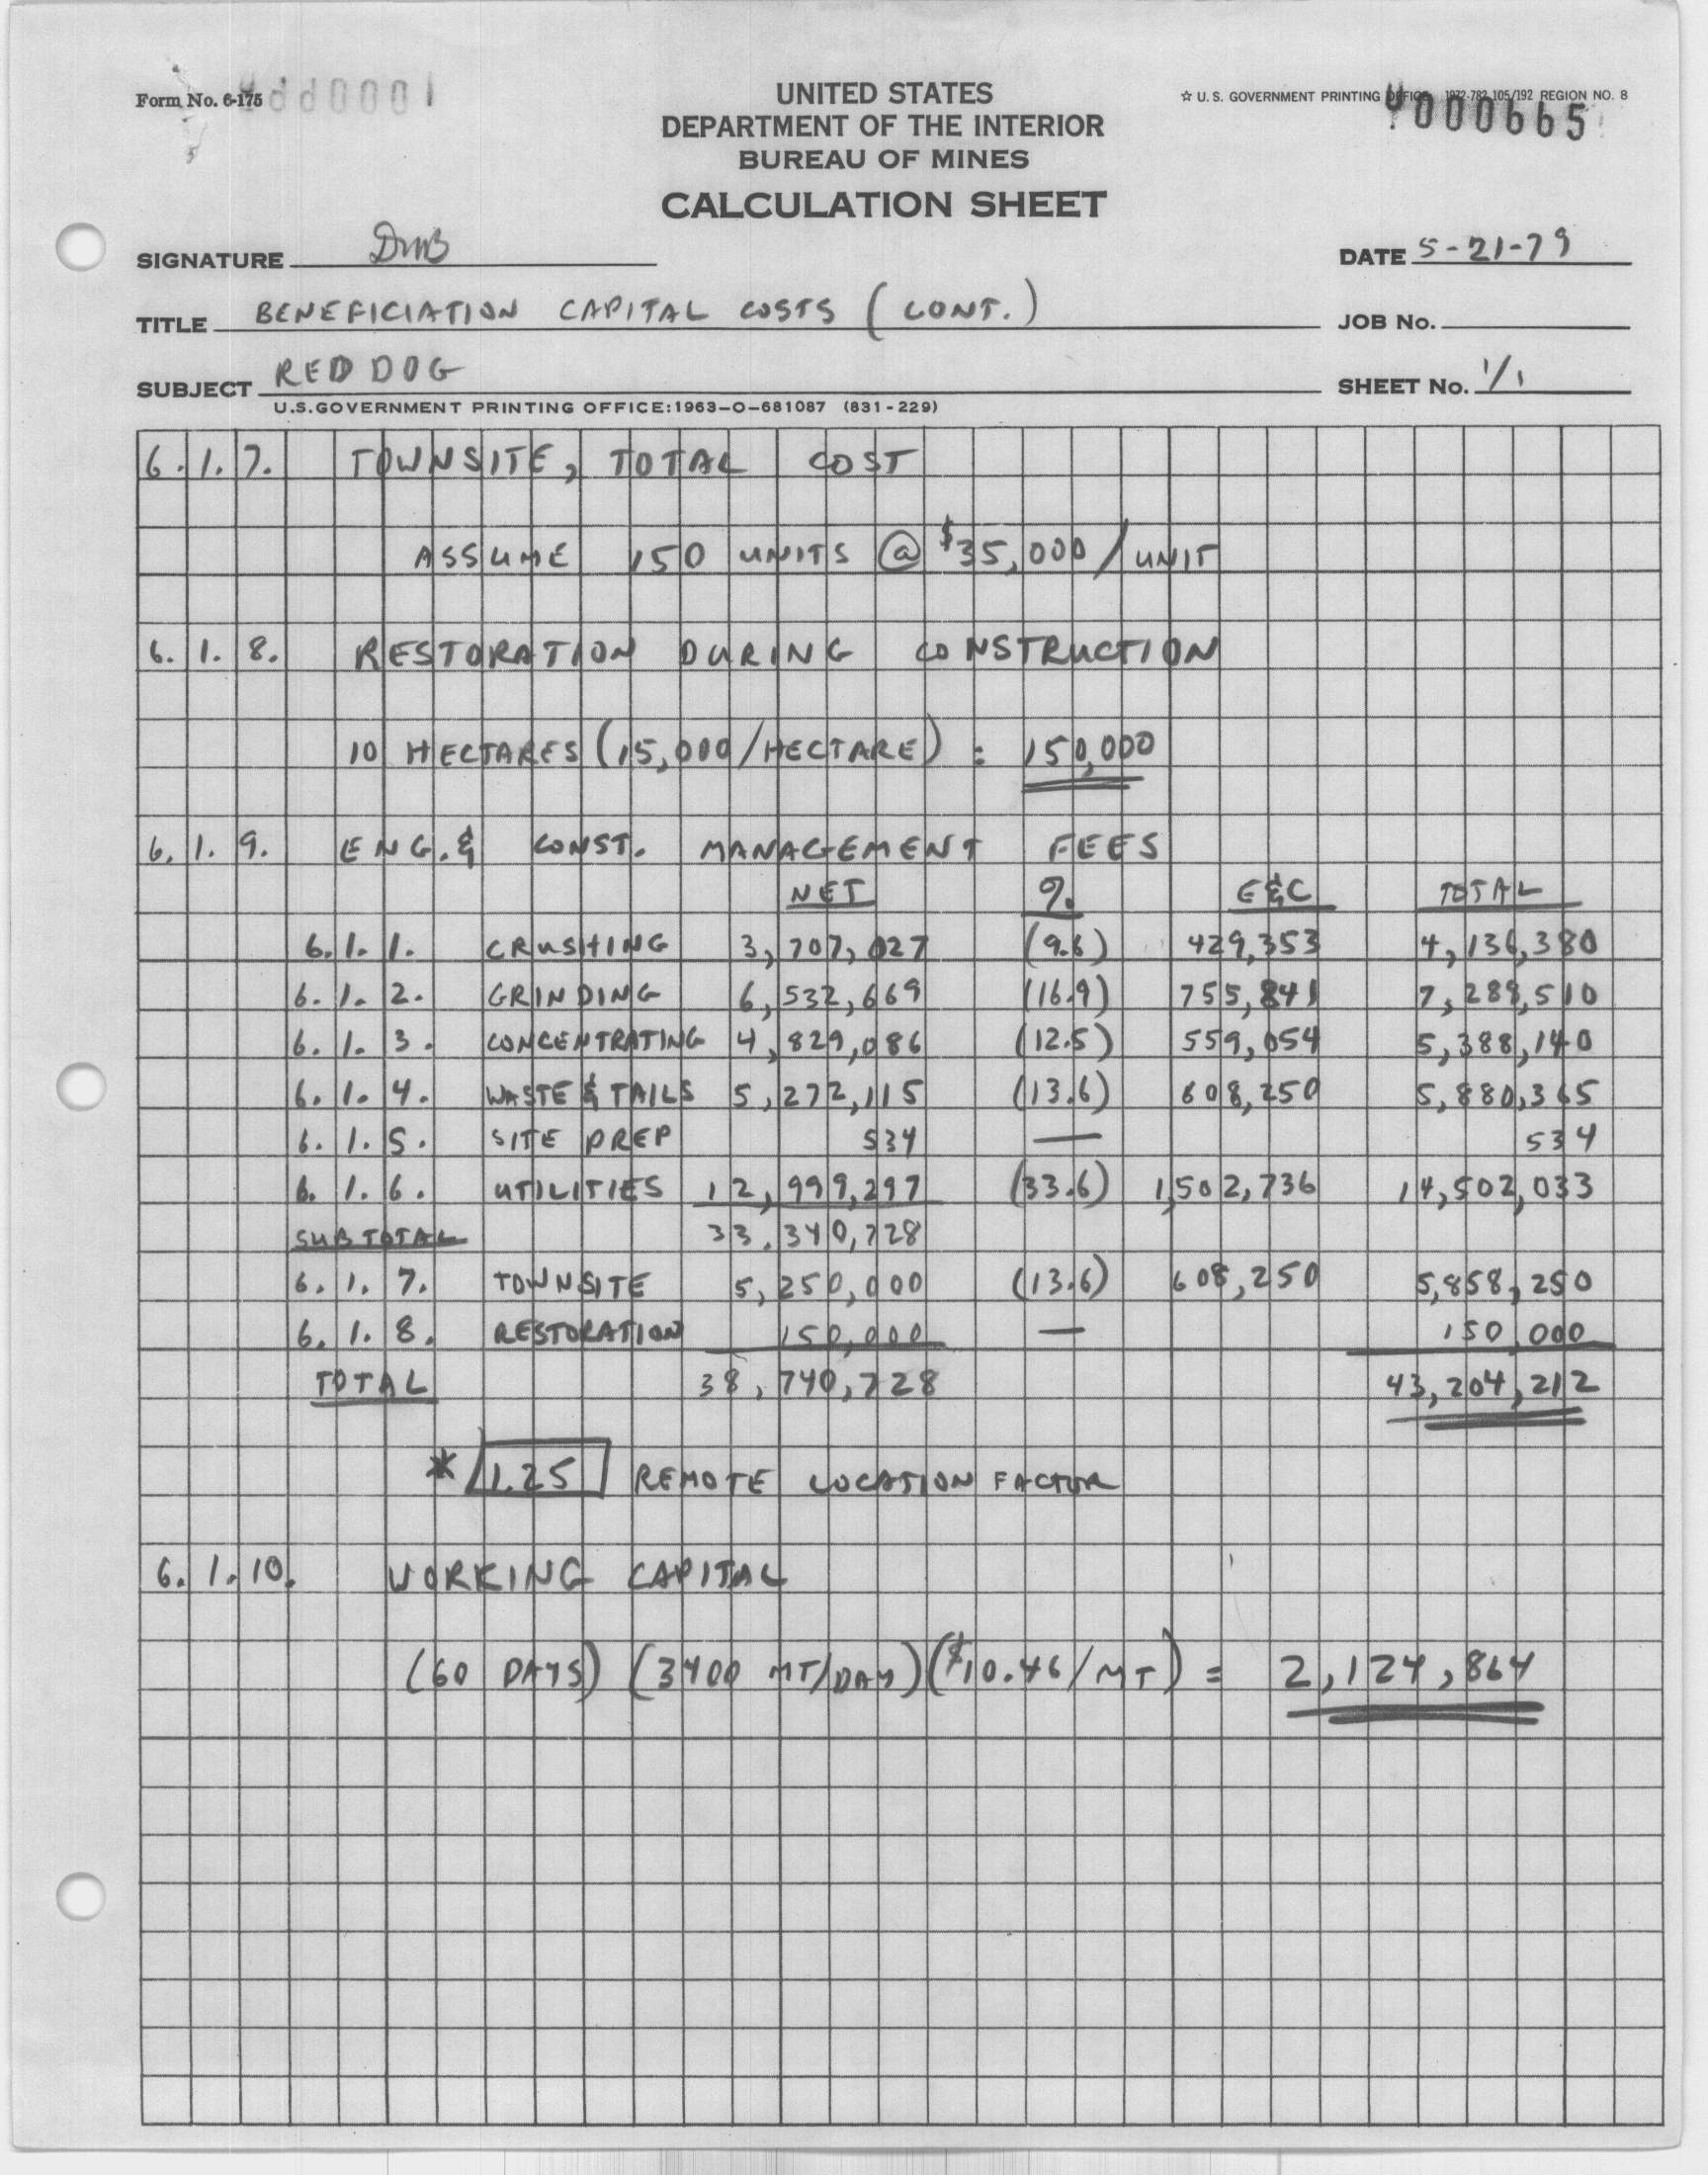 Form No. 6-175
UNITED STATES
DEPARTMENT OF THE INTERIOR
BUREAU OF MINES
CALCULATION SHEET
☆ U. S. GOVERNMENT PRINTING OFFICE 1972-782-105/192 REGION NO. 8
000665
SIGNATURE DMB
DATE 5-21-79
TITLE BENEFICIATION CAPITAL COSTS (CONT.)
JOB No.
SUBJECT RED DOG
SHEET No. 1/1
U.S.GOVERNMENT PRINTING OFFICE:1963-O-681087 (831-229)
6.1.7. TOWNSITE, TOTAL COST
ASSUME 150 UNITS @ $35,000/UNIT
6.1.8. RESTORATION DURING CONSTRUCTION
10 HECTARES (15,000/HECTARE) = 150,000
6.1.9. ENG. & CONST. MANAGEMENT FEES
NET % E&C TOTAL
6.1.1. CRUSHING 3,707,027 (9.6) 429,353 4,136,380
6.1.2. GRINDING 6,532,669 (16.9) 755,841 7,288,510
6.1.3. CONCENTRATING 4,829,086 (12.5) 559,054 5,388,140
6.1.4. WASTE & TAILS 5,272,115 (13.6) 608,250 5,880,365
6.1.5. SITE PREP 534 — 534
6.1.6. UTILITIES 12,999,297 (33.6) 1,502,736 14,502,033
SUBTOTAL 33,340,728
6.1.7. TOWNSITE 5,250,000 (13.6) 608,250 5,858,250
6.1.8. RESTORATION 150,000 — 150,000
TOTAL 38,740,728 43,204,212
* 1.25 REMOTE LOCATION FACTOR
6.1.10. WORKING CAPITAL
(60 DAYS) (3400 MT/DAY) ($10.46/MT) = 2,124,864